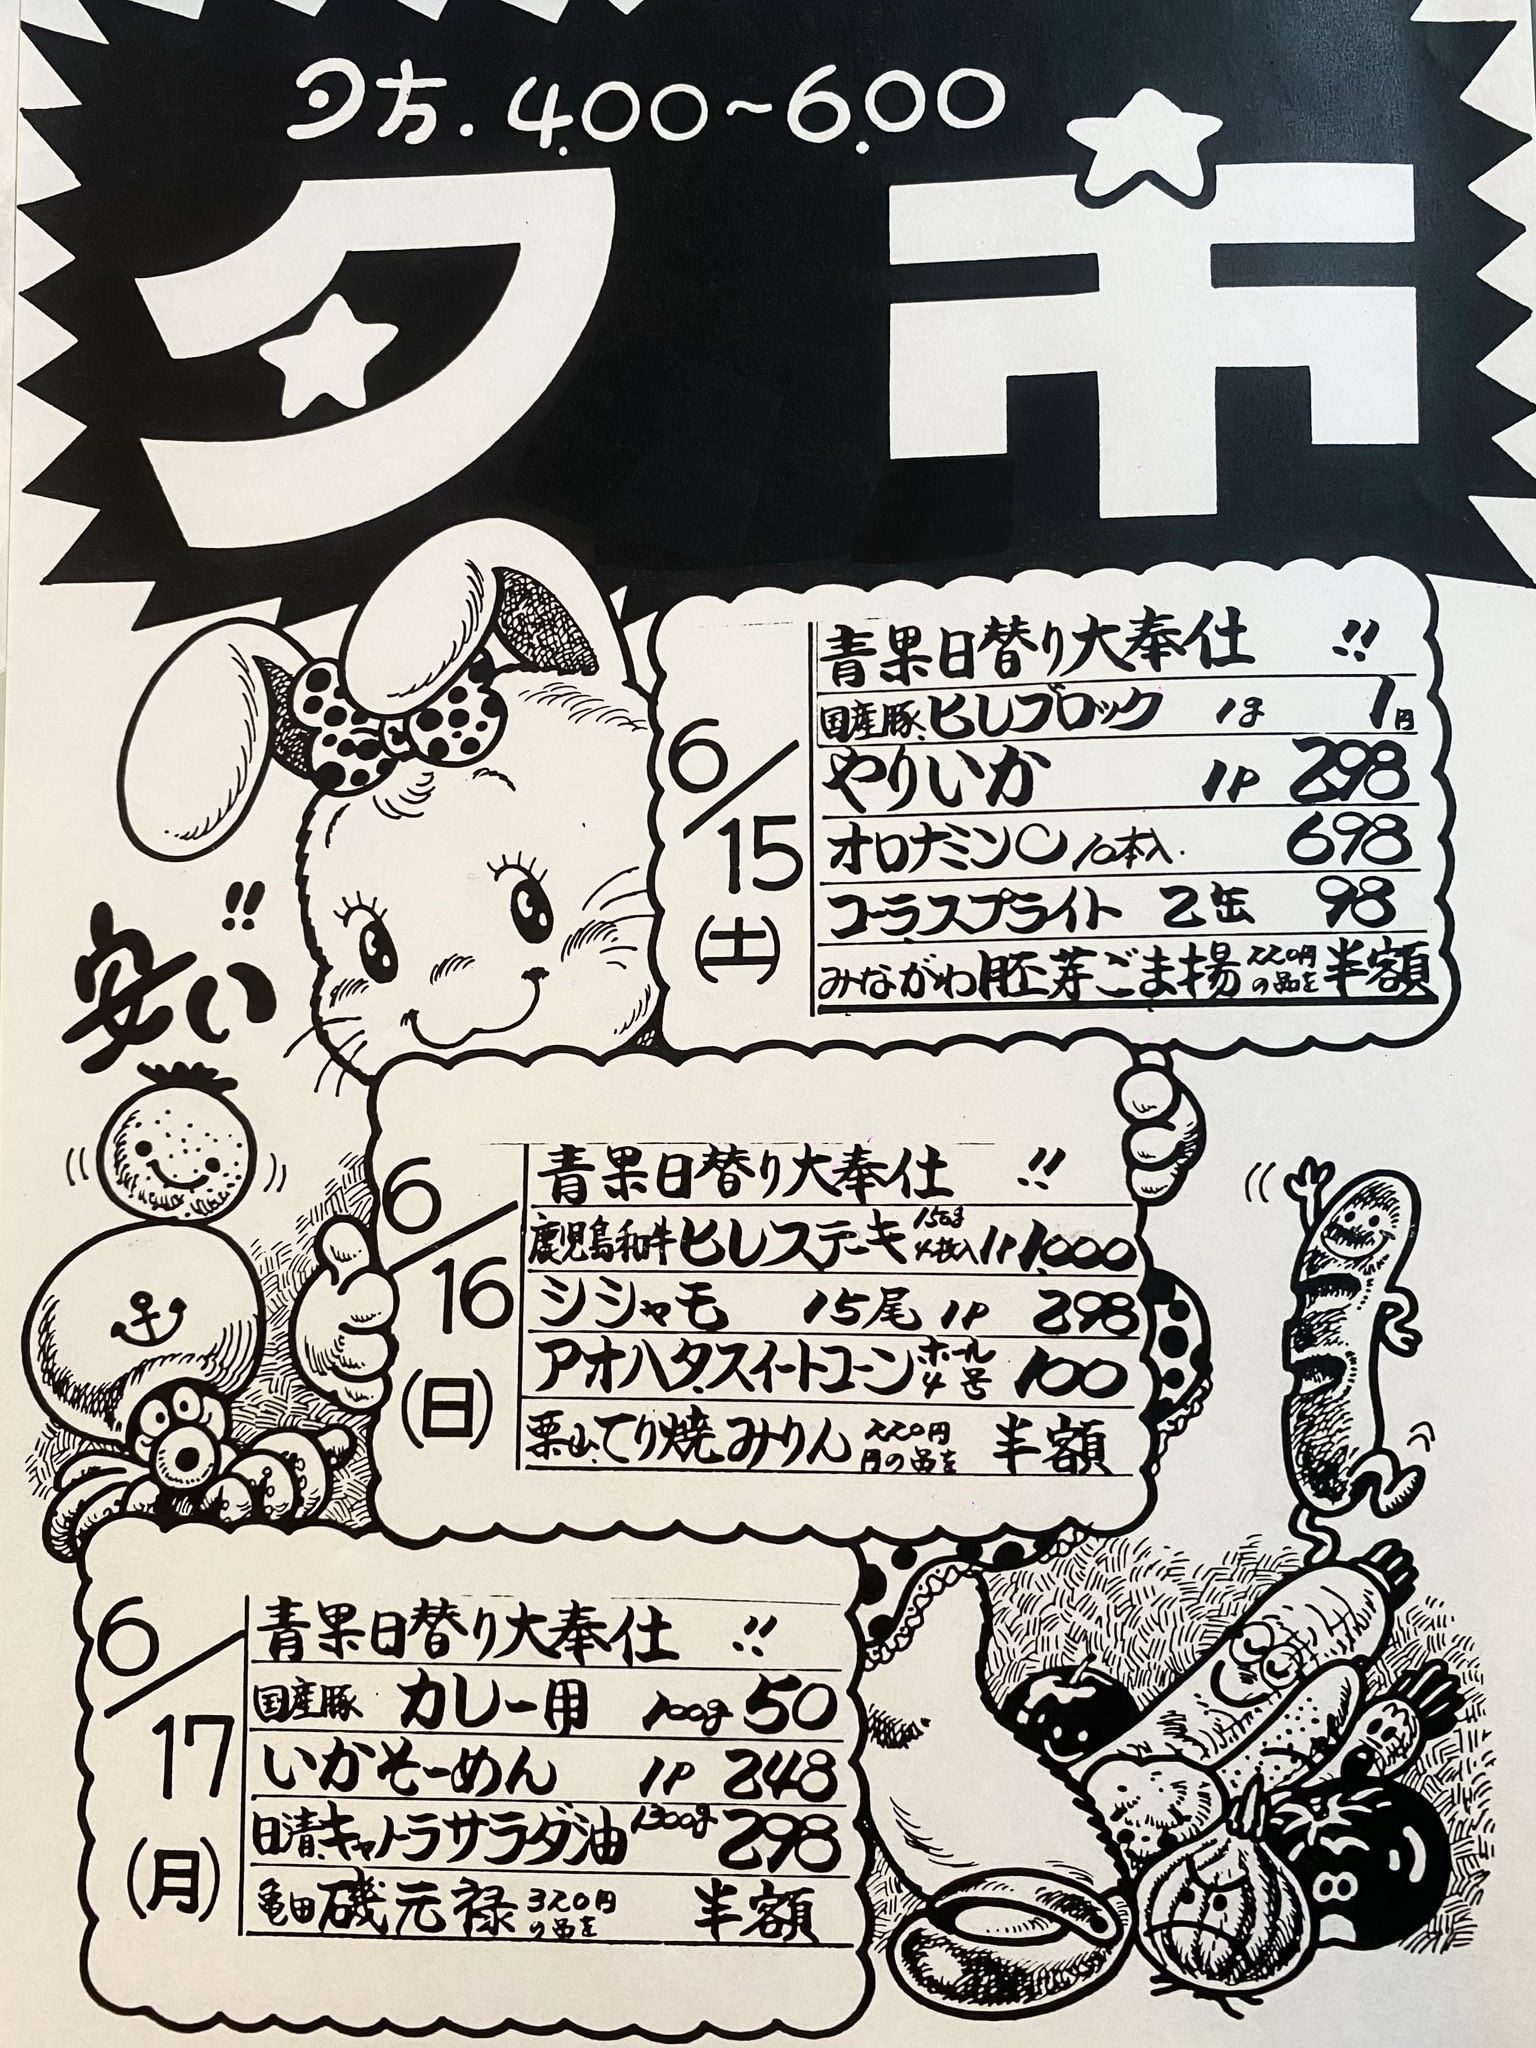 夕方.4.00~6.00
夕市
安い!!
6/15(土)
青果日替り大奉仕!!
国産豚、ヒレブロック 1g 1円
やりいか 1P 298
オロナミンC 10本入. 698
コーラ.スプライト 2缶 98
みながわ胚芽ごま揚 220円の品を 半額
6/16(日)
青果日替り大奉仕!!
鹿児島和牛ヒレステーキ 150g 4枚入 1P 1,000
シシャモ 15尾 1P 298
アオハタ.スイートコーン ホール4号 100
栗山、てり焼みりん 220円円の品を 半額
6/17(月)
青果日替り大奉仕!!
国産豚 カレー用 100g 50
いかそーめん 1P 248
日清.キャノーラサラダ油 1300g 298
亀田 磯元禄 320円の品を 半額